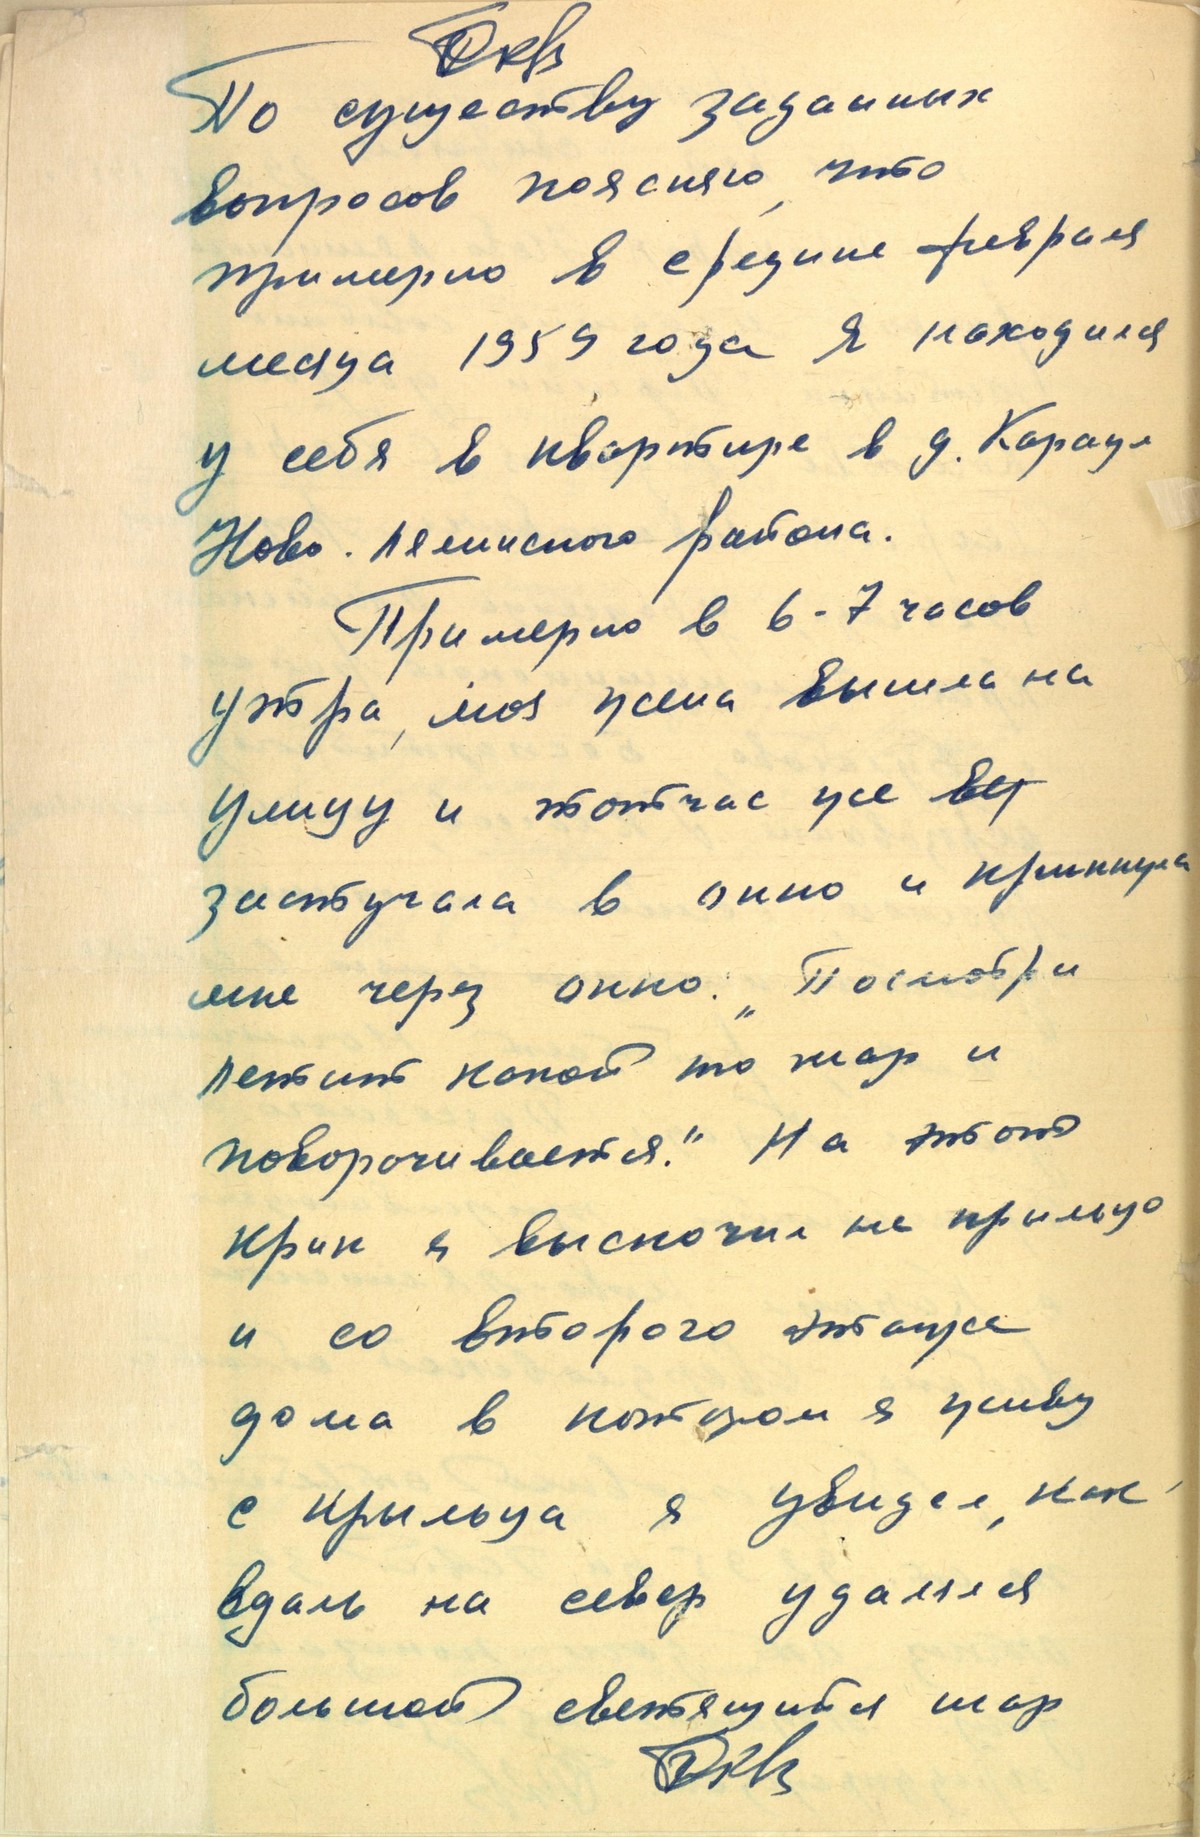 По существу заданных
вопросов поясняю, что
примерно в средине февраля
месяца 1959 года я находился
у себя в квартире в д. Караул
Ново-Лялинского района.
Примерно в 6-7 часов
утра, моя жена вышла на
улицу и тотчас же
застучала в окно и крикнула
мне через окно: „Посмотри
летит какой то шар и
поворачивается." На этот
крик я выскочил на крыльцо
и со второго этажа
дома в котором я живу
с крыльца я увидел, как
вдаль на север удалялся
большой светящийся шар